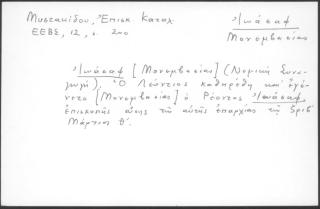 Μυστακίδου, Ἐπισκ. Καταλ.
ΕΕΒΣ, 12, σ. 200
Ἰωάσαφ
Μονομβασίας
Ἰωάσαφ [Μονομβασίας] (Νομικὴ Συνα-
γωγή). Ὁ Λεόντιος καθηρέθη καὶ ἐγέ-
νετο [Μονομβασίας] ὁ Ρέοντος Ἰωάσαφ,
ἐπισκοπῆς οὔσης τῆς αὐτῆς ἐπαρχίας τῇ
Μάρτιος θ΄.